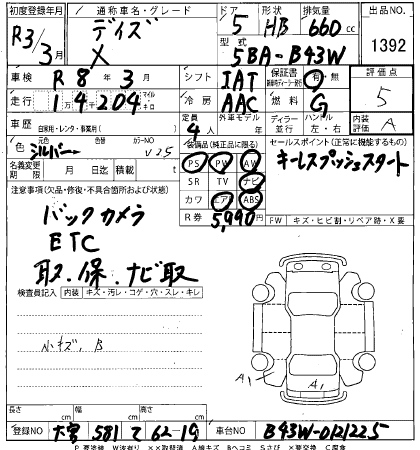 初度登録年月 通称車名・グレード ドア 形状 排気量 出品NO.
R3年/3月 デイズ X 5 HB 660 cc 1392
型式 5BA-B43W
車検 R8年3月 シフト IAT 保証書 有・無 評価点 5
走行 14204 マイル キロ 冷房 AAC 燃料 G 内装 A
車歴 自家用・レンタ・事業用( ) 定員 4人 外車モデル 年 ディーラー 並行 ハンドル 左・右
色 シルバー カラーNO V25 装備品(純正品に限る) セールスポイント(正常に機能するもの)
名義変更期限 月 日迄 積載 t PS PW AW キーレスプッシュスタート
注意事項(欠品・修復・不具合箇所および状態) SR TV ナビ
カワ エア ABS
バックカメラ R券 5,990円 FW キズ・ヒビ割・リペア跡・X要
ETC
取.保.ナビ取
検査員記入 内装 キズ・汚レ・コゲ・穴・スレ・キレ
小キズ、B
A1 A1
長さ cm 幅 cm 高さ cm
登録NO 大宮 581 て 62-19 車台NO B43W-0121225
P 要塗装 W波有り ××取替済 A線キズ Bヘコミ Sさび ×要交換 C腐食